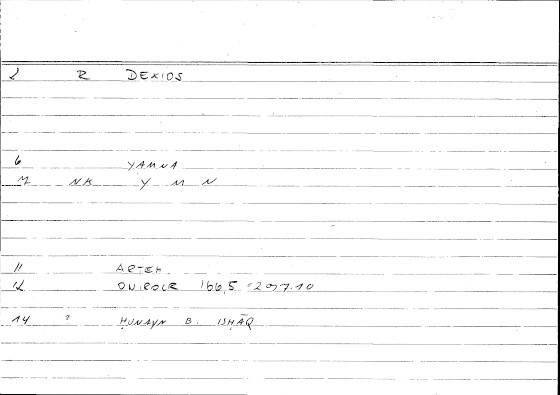 2 R DEXIOS
6 YAMNA
M NK Y M N
11 ARTEM
12 ONIROCR 166.5 207.10
14 ? ḤUNAYN B. ISḤĀQ